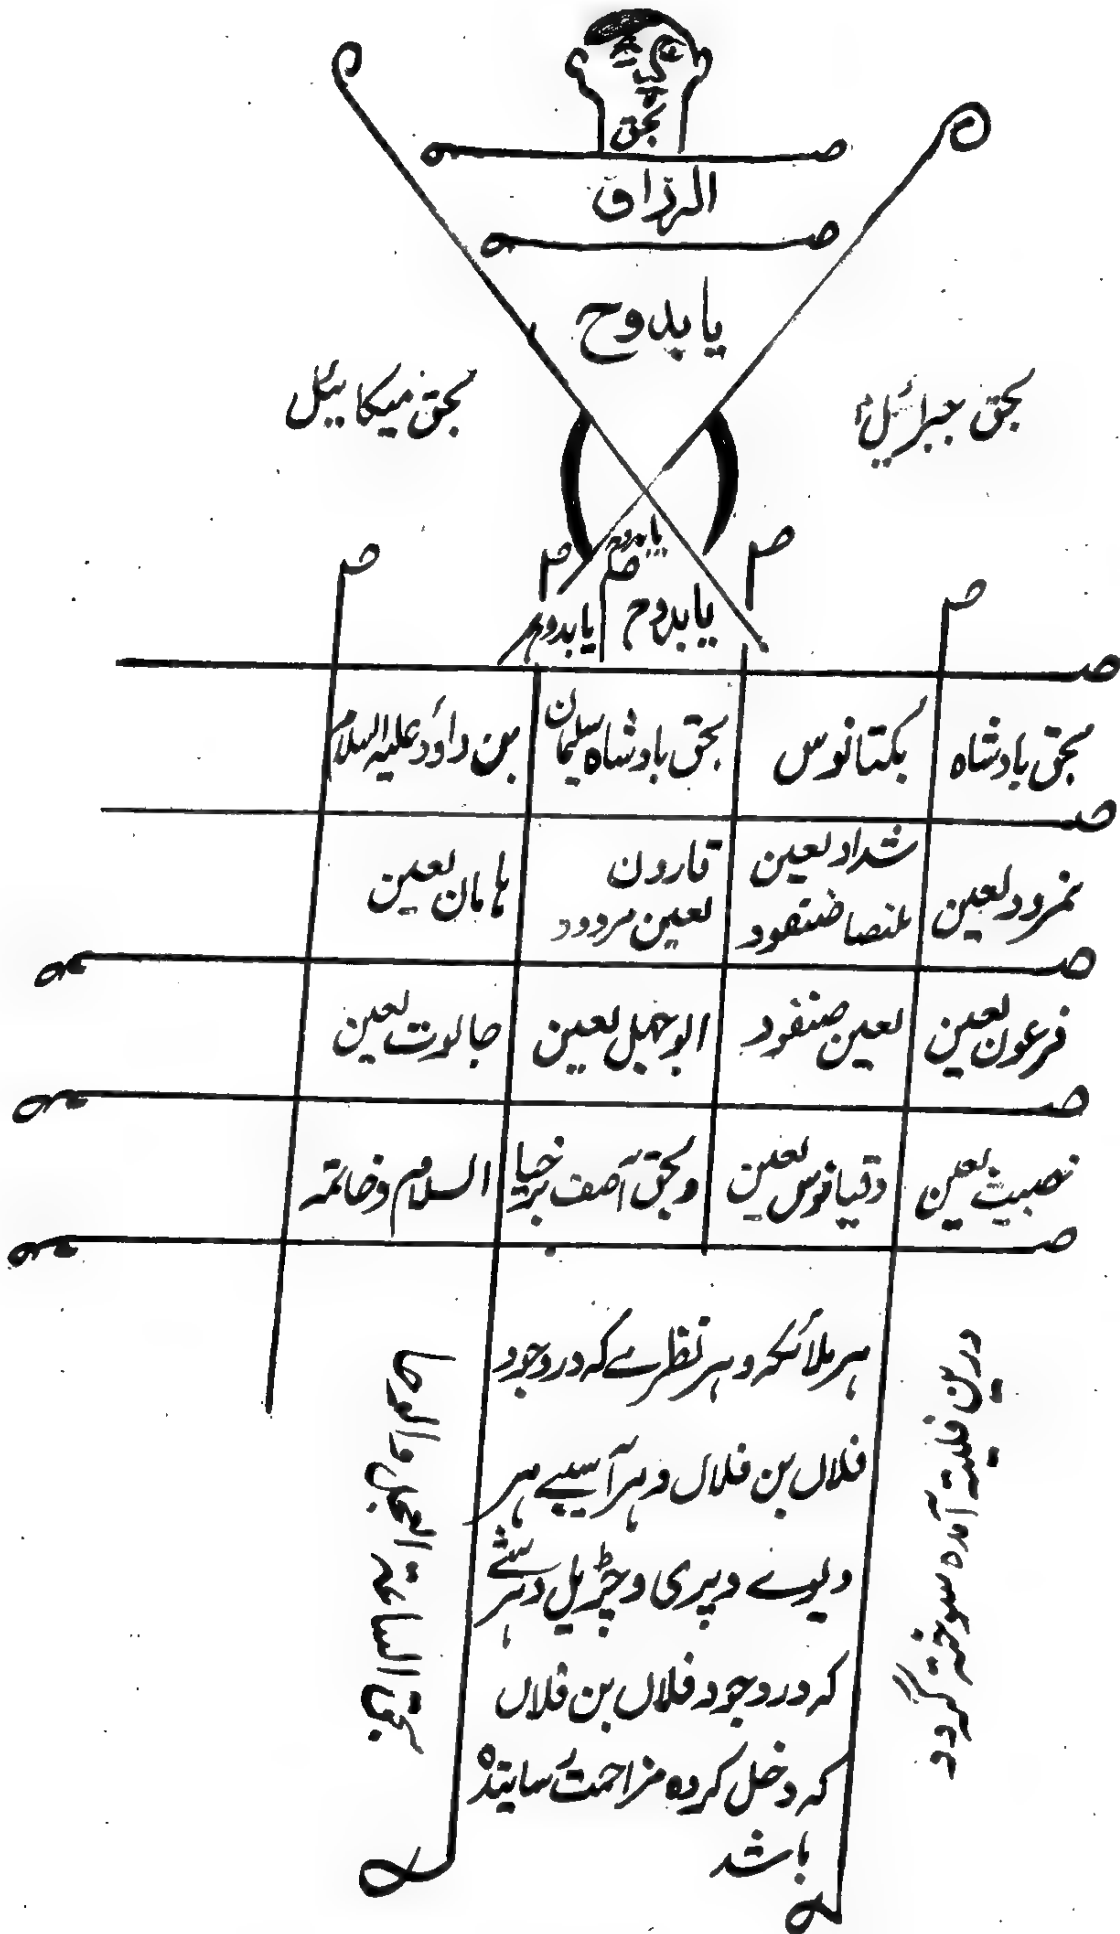 بحق
الرزاق
یا بدوح
بحق جبرائیلؑ
بحق میکائیل
یا بدوح
یا بدوح
یا بدوح
بحق بادشاه
بکتانوس
بحق بادشاه سلیمان
بن داؤد علیہ السلام
نمرود لعین
شداد لعین
ضتفود
قارون
لعین مردود
ہامان لعین
فرعون لعین
لعین صنفود
ابوجہل لعین
جالوت لعین
لعین
دقیانوس لعین
وبحق آصف برخیا
السلام وخاتمہ
ہر ملائکہ وہر نظرے کہ در وجود
فلاں بن فلاں وہر آسیبے ہر
دیوے وپری وچڑیل وہر شئے
کہ در وجود فلاں بن فلاں
کہ دخل کردہ مزاحمت رسایندہ
باشد
درین فلیتہ آمدہ سوختہ گردد
بحق الساعة العجل والوحا